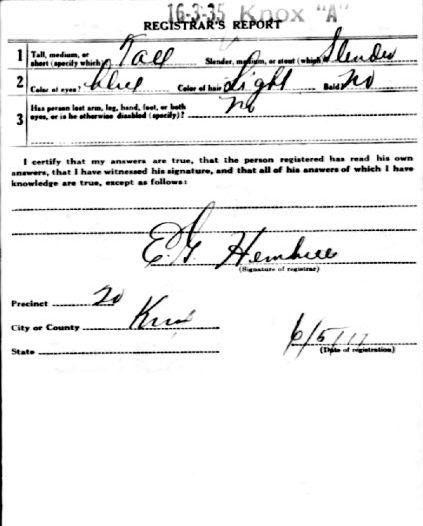 16-3-35 Knox "A"
REGISTRAR'S REPORT
1 Tall, medium, or short (specify which) Tall Slender, medium, or stout (which) Slender
2 Color of eyes? Blue Color of hair Light Bald No
3 Has person lost arm, leg, hand, foot, or both eyes, or is he otherwise disabled (specify)? No
I certify that my answers are true, that the person registered has read his own
answers, that I have witnessed his signature, and that all of his answers of which I have
knowledge are true, except as follows:
E. G.
(Signature of registrar)
Precinct 20
City or County Knox
State
6/5/17
(Date of registration)